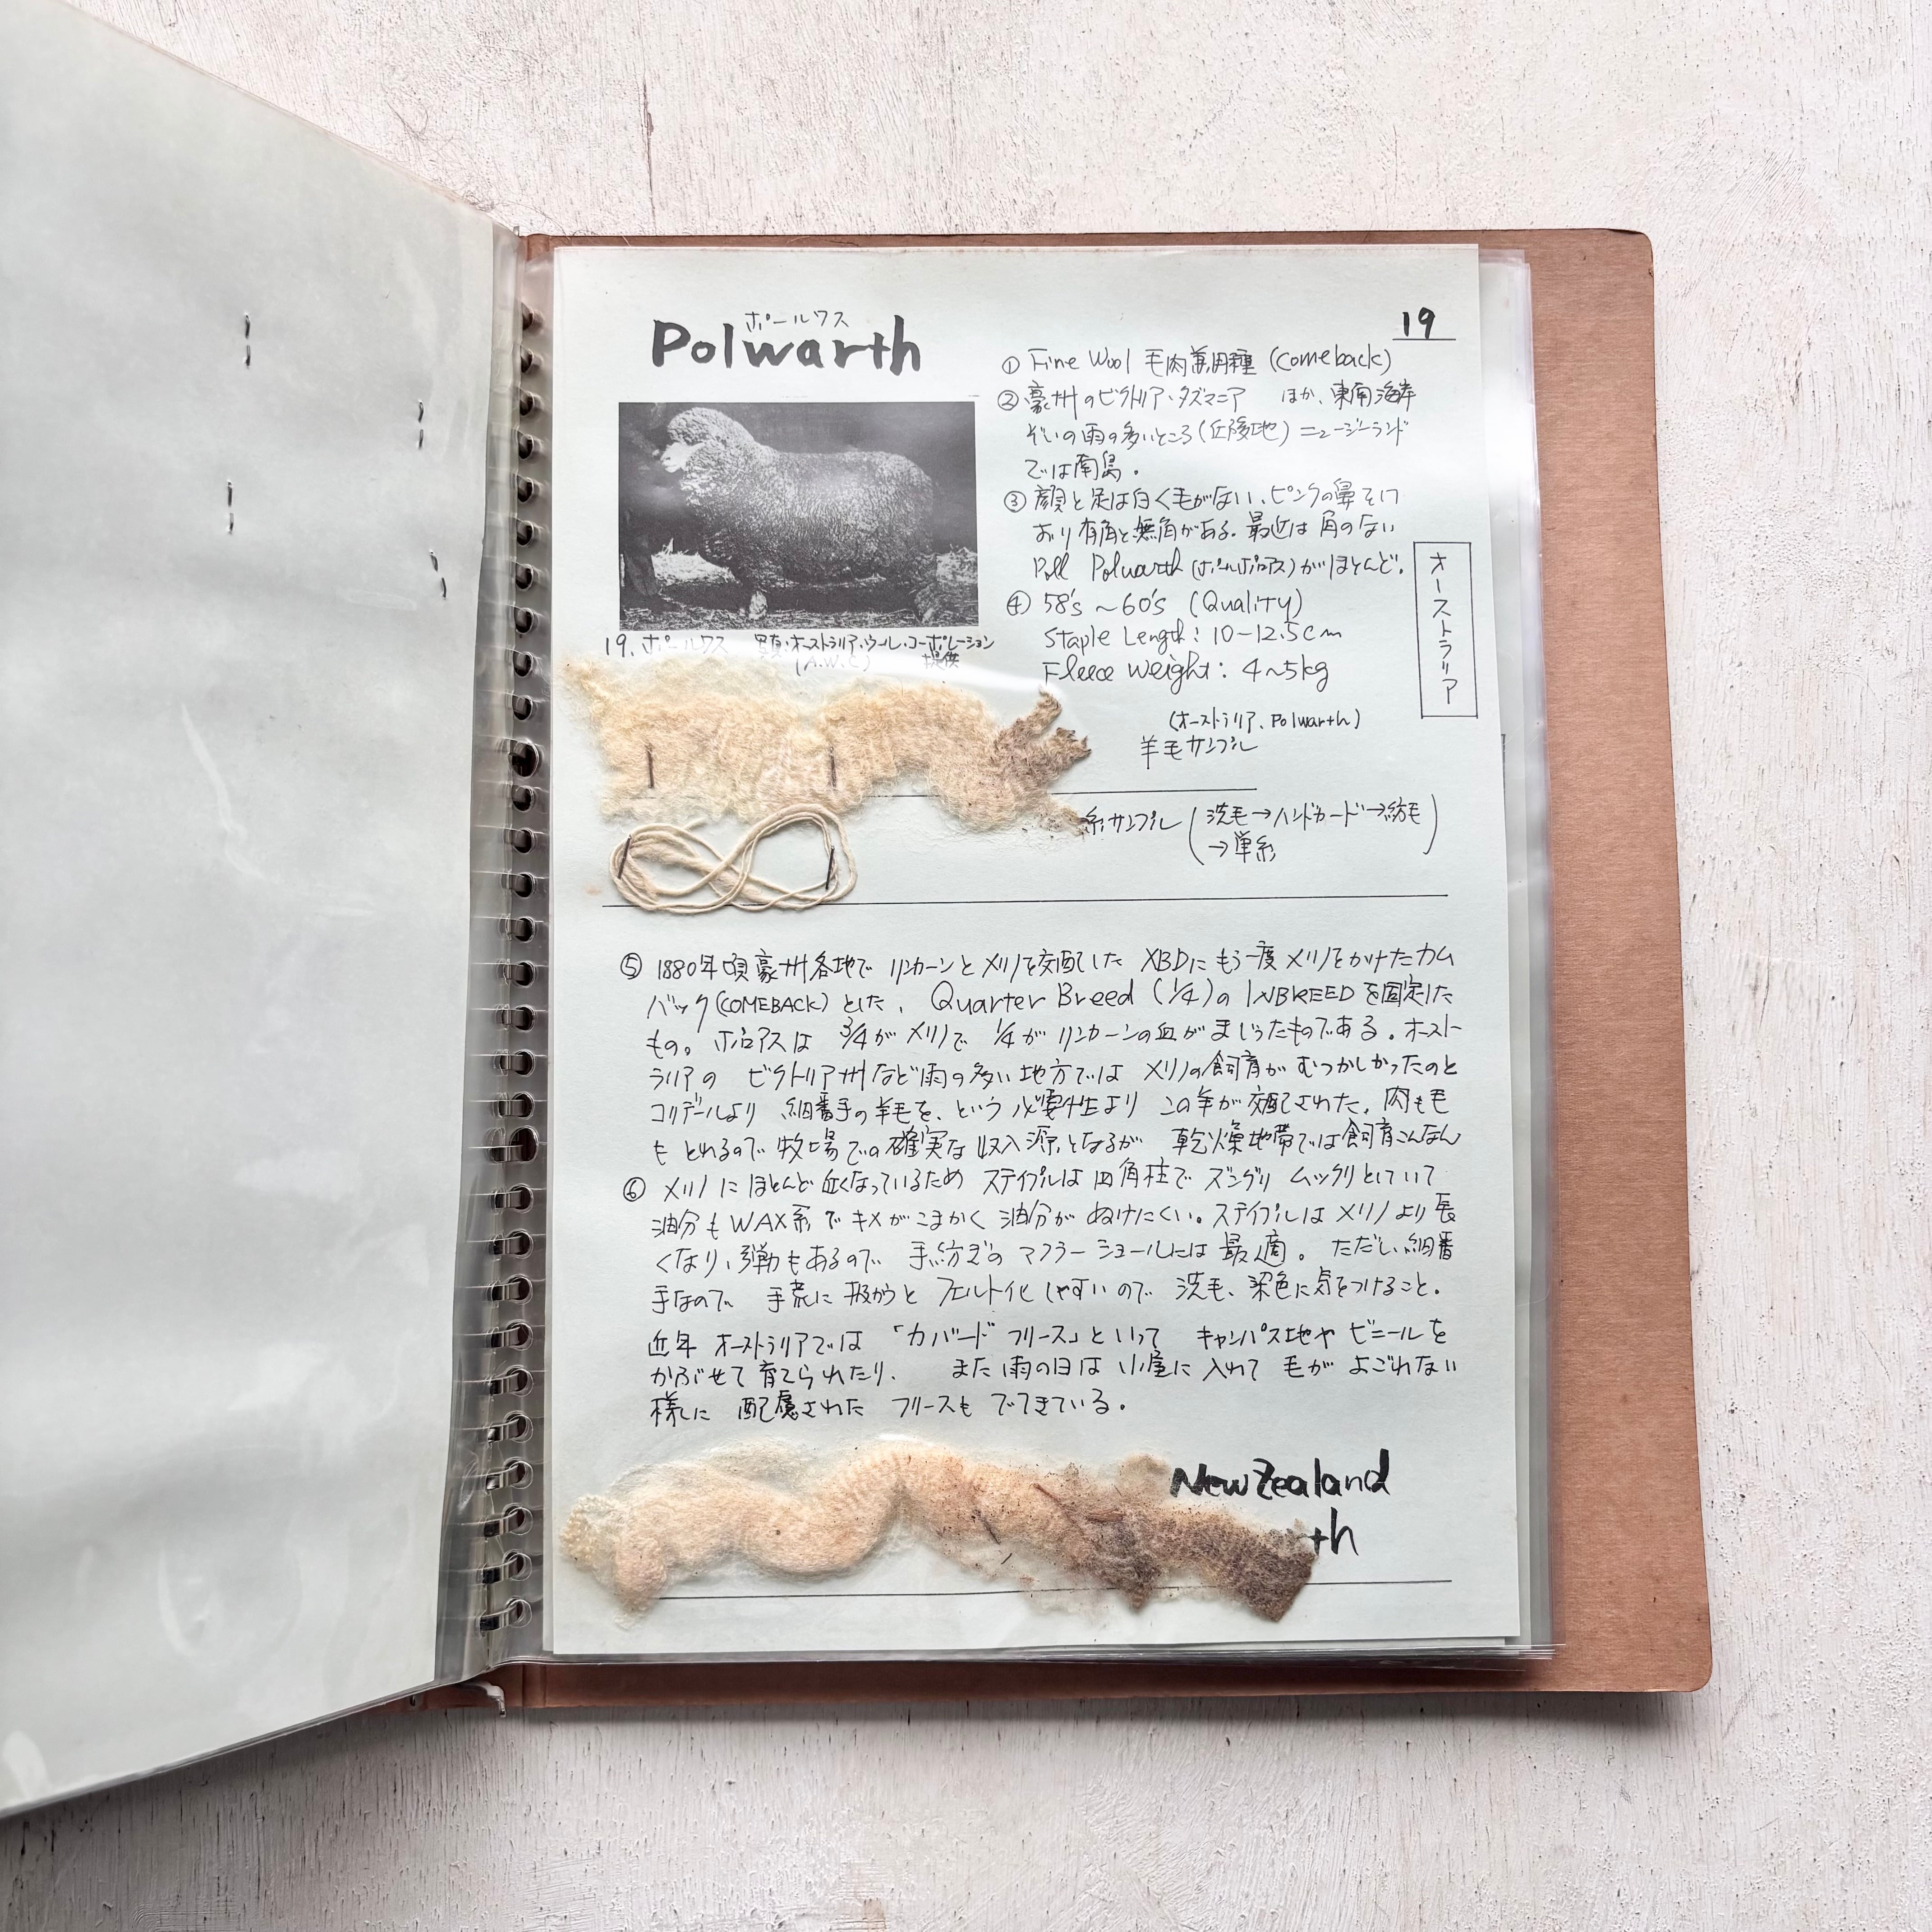 ポールワス
Polwarth
19
① Fine Wool 毛肉兼用種 (comeback)
② 豪州のビクトリア・タズマニア ほか、東南海岸
ぞいの雨の多いところ(丘陵地) ニュージーランド
では南島。
③ 顔と足は白く毛がない、ピンクの鼻をして
おり有角と無角がある。最近は角のない
Poll Polwarth (ポールポロアス)がほとんど。
④ 58's ~ 60's (Quality)
Staple Length: 10-12.5cm
Fleece Weight: 4~5kg
オーストラリア
19. ポールワス 写真・オーストラリア・ウール・コーポレーション
(A.W.C) 提供
(オーストラリア、Polwarth)
羊毛サンプル
糸サンプル (洗毛→ハンドカード→紡毛
→単糸)
⑤ 1880年頃豪州各地で リンカーンとメリノを交配した XBDにもう一度メリノをかけたカム
バック(COMEBACK)とした、Quarter Breed (1/4)の INBREEDを固定した
もの。ポロアスは 3/4がメリノで 1/4がリンカーンの血がまじったものである。オースト
ラリアの ビクトリア州など雨の多い地方では メリノの飼育が むつかしかったのと
コリデールより 細番手の羊毛を、という必要性より この羊が交配された。肉も毛
も とれるので 牧場での確実な収入源となるが 乾燥地帯では飼育こんなん
⑥ メリノにほとんど近くなっているため ステイプルは四角柱で ズングリ ムックリとしていて
油分もWAX系でキメがこまかく油分がぬけにくい。ステイプルはメリノより長
くなり、弾力もあるので 手紡ぎの マフラー ショールには 最適。ただし、細番
手なので 手荒に扱かうと フェルト化しやすいので 洗毛、染色に気をつけること。
近年 オーストラリアでは 「カバード フリース」といって キャンバス地や ビニールを
かぶせて育てられたり、また雨の日は 小屋に入れて 毛が よごれない
様に 配慮された フリースも でてきている。
New Zealand
th